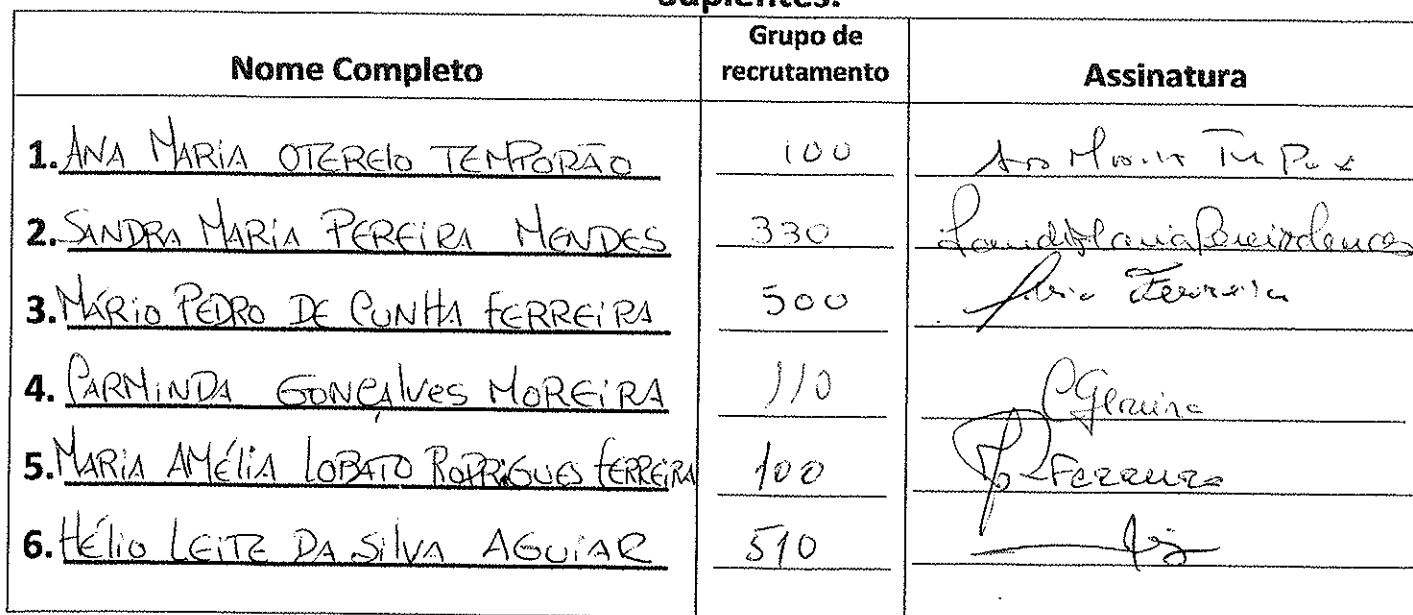 Suplentes:
Nome Completo Grupo de recrutamento Assinatura
1. ANA MARIA OTERELO TEMPORÃO 100
2. SANDRA MARIA PEREIRA MENDES 330
3. MÁRIO PEDRO DE CUNHA FERREIRA 500 Ferreira
4. CARMINDA GONÇALVES MOREIRA 110
5. MARIA AMÉLIA LOBATO RODRIGUES FERREIRA 100 Ferreira
6. HÉLIO LEITE DA SILVA AGUIAR 510